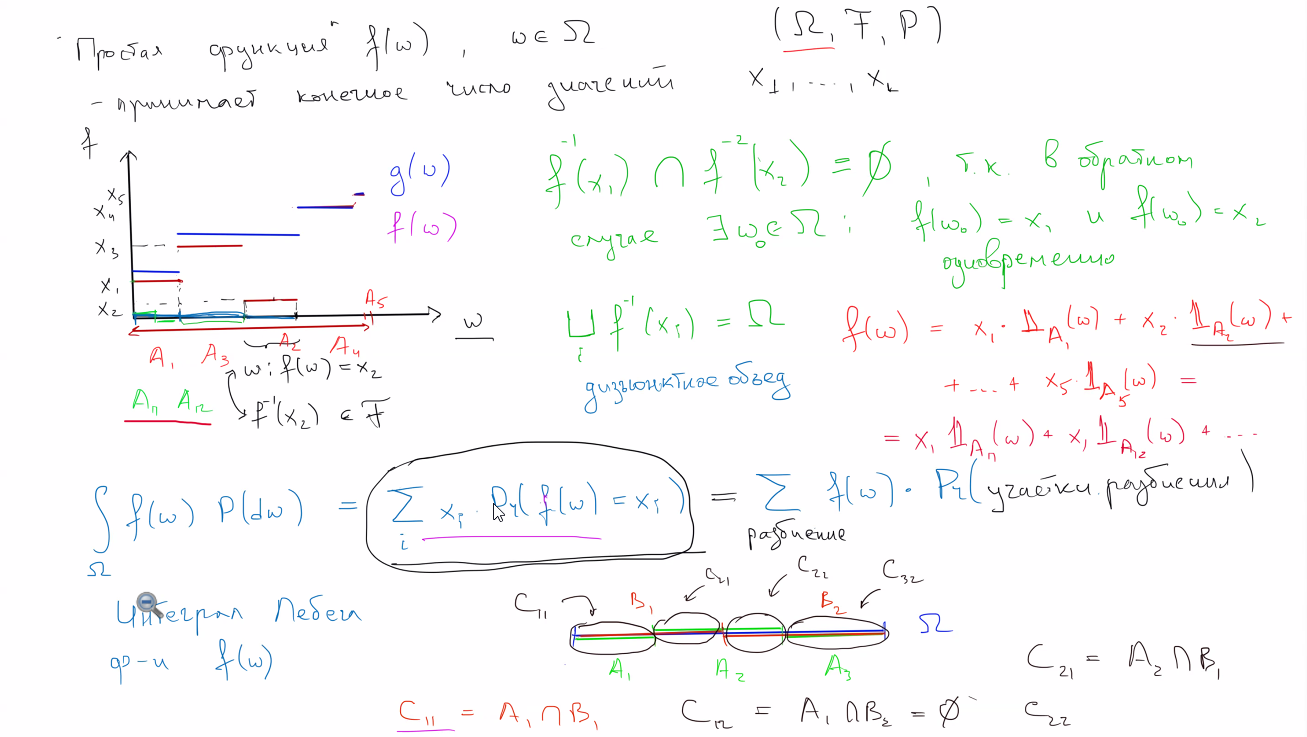 "Простая функция" f(ω), ω ∈ Ω (Ω, F, P)
- принимает конечное число значений x₁, ..., xₖ
f
g(ω)
f(ω)
x₅
x₄
x₃
x₁
x₂
A₅
ω
A₁ A₃ A₂ A₄
ω: f(ω) = x₂
f⁻¹(x₂) ∈ F
A₁₁ A₁₂
f⁻¹(x₁) ∩ f⁻²(x₂) = ∅, т.к. в обратном
случае ∃ ω₀ ∈ Ω: f(ω₀) = x₁ и f(ω₀) = x₂
одновременно
⊔ᵢ f⁻¹(xᵢ) = Ω
дизъюнктное объед
f(ω) = x₁ · 𝟙_A₁(ω) + x₂ · 𝟙_A₂(ω) +
+ ... + x₅ · 𝟙_A₅(ω) =
= x₁ 𝟙_A₁₁(ω) + x₁ 𝟙_A₁₂(ω) + ...
∫_Ω f(ω) P(dω) = ∑ᵢ xᵢ · Pr(f(ω) = xᵢ) = ∑ f(ω) · Pr(участки разбиения)
разбиение
Интеграл Лебега
ф-и f(ω)
C₁₁ B₁ C₂₁ C₂₂ B₂ C₃₂
Ω
A₁ A₂ A₃
C₂₁ = A₂ ∩ B₁
C₁₁ = A₁ ∩ B₁ C₁₂ = A₁ ∩ B₂ = ∅ C₂₂